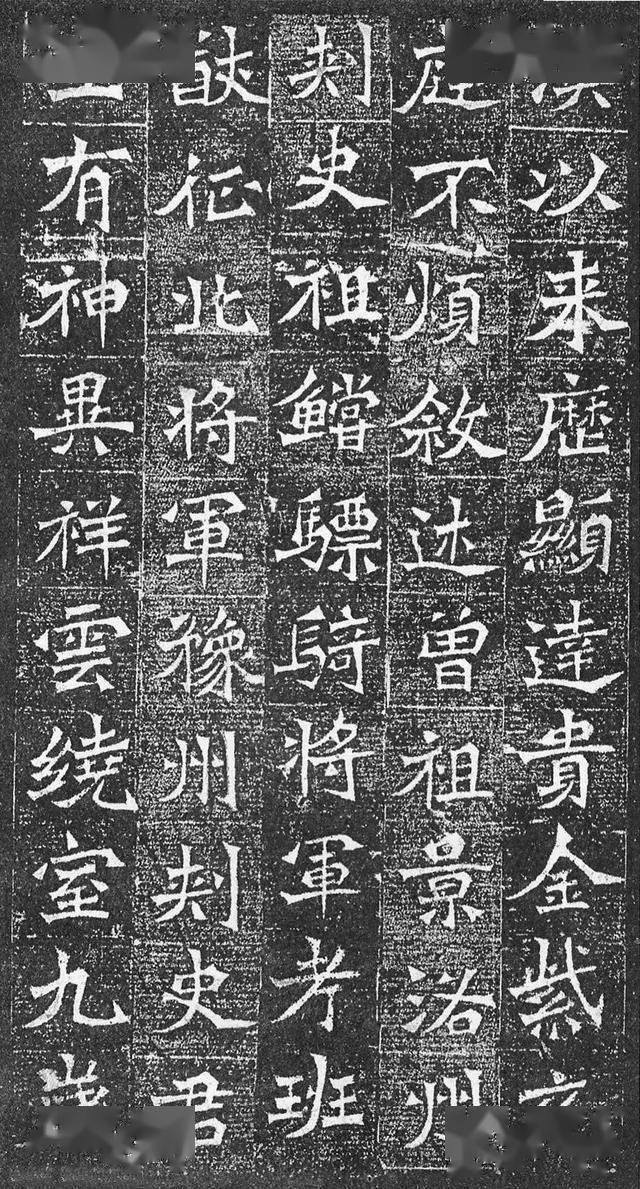 以来歷顯達貴金紫
庭不煩敘述曾祖景洛州
刺史祖鱨驃騎将軍考班
猷征北将軍豫州刺史君
有神異祥雲繞室九歲